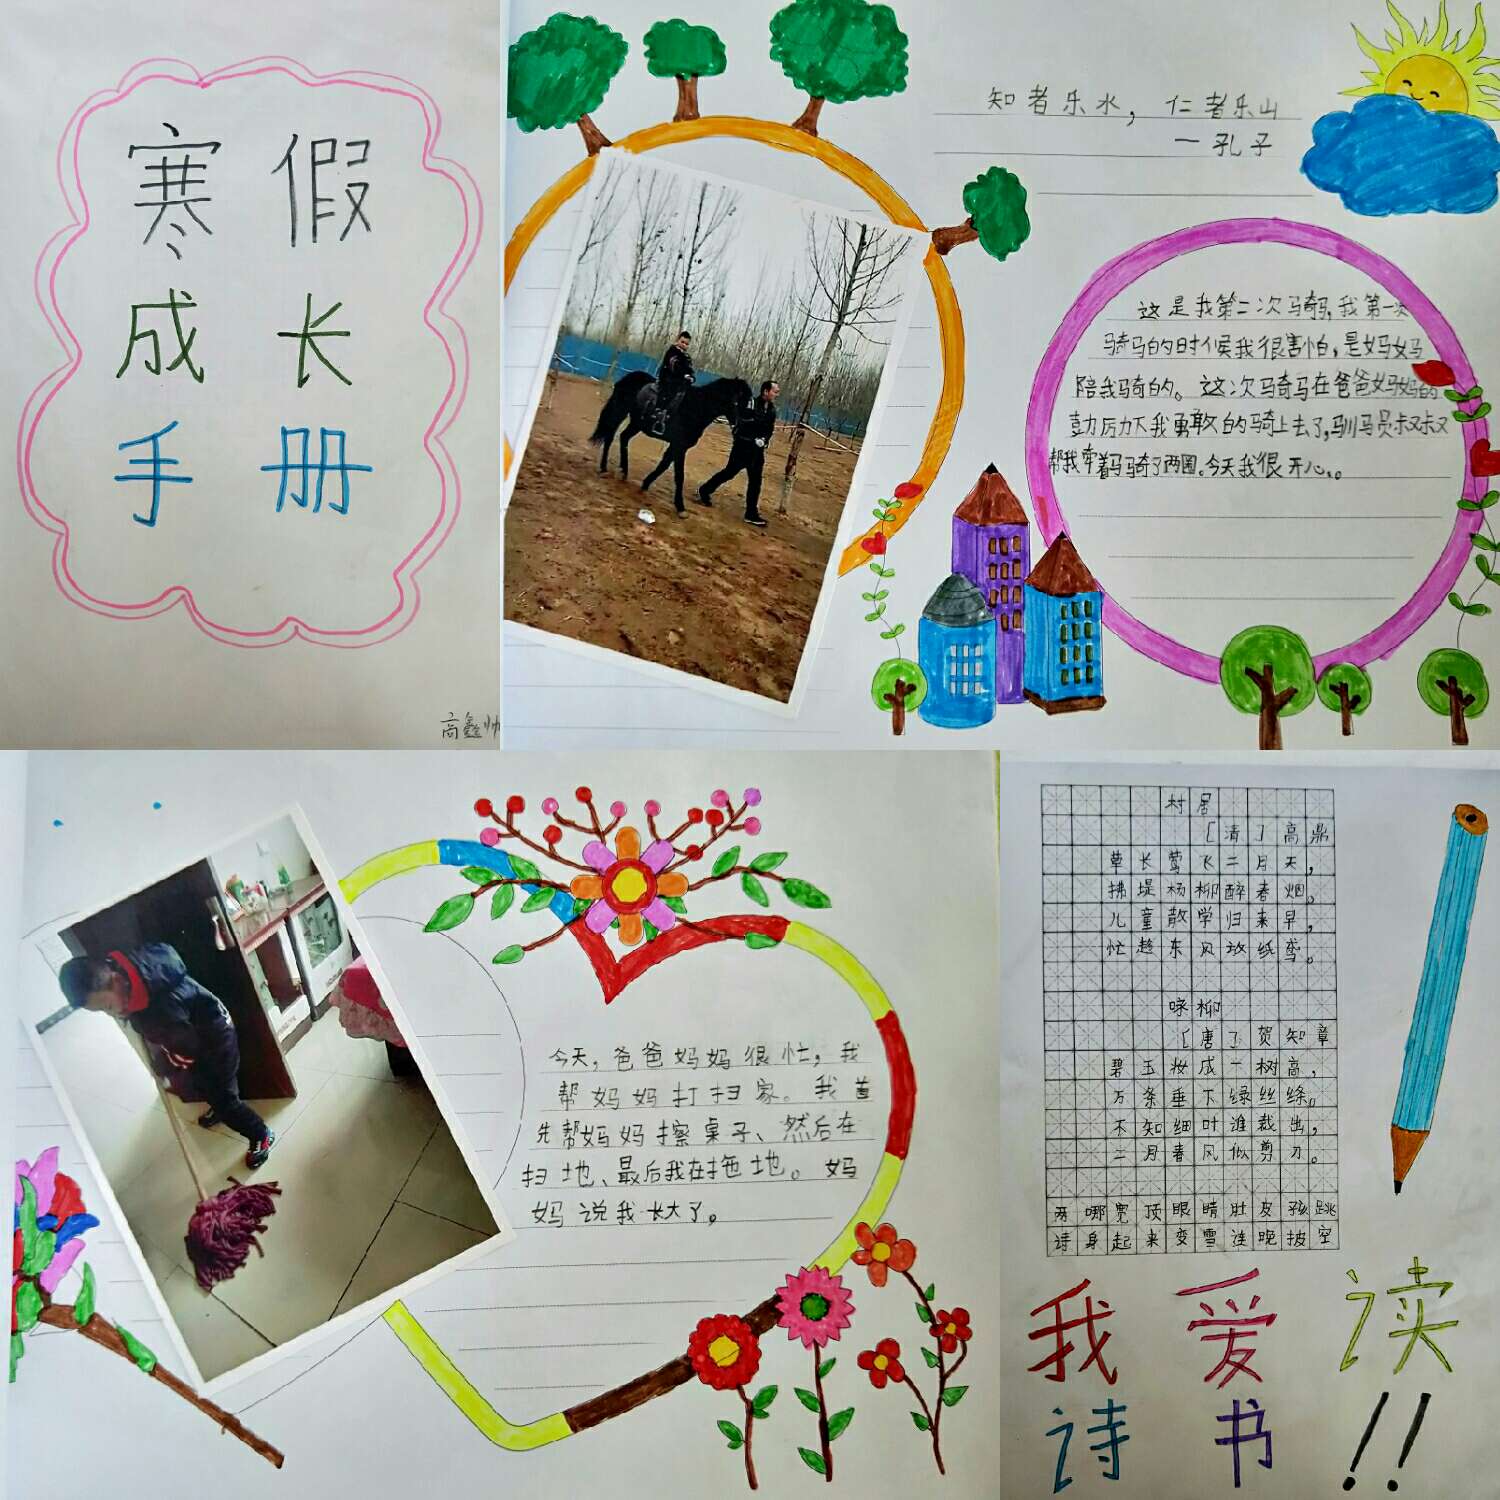 寒假
成长
手册
高鑫帅
知者乐水，仁者乐山
一孔子
这是我第二次马骑，我第一次
骑马的时候我很害怕，是妈妈
陪我骑的。这次骑马在爸爸妈妈的
鼓厉下我勇敢的骑上去了，驯马员叔叔
帮我牵着马骑了两圈。今天我很开心。
今天，爸爸妈妈很忙，我
帮妈妈打扫家。我首
先帮妈妈擦桌子、然后在
扫地、最后我在拖地。妈
妈说我长大了。
村居
[清]高鼎
草长莺飞二月天，
拂堤杨柳醉春烟。
儿童散学归来早，
忙趁东风放纸鸢。
咏柳
[唐]贺知章
碧玉妆成一树高，
万条垂下绿丝绦。
不知细叶谁裁出，
二月春风似剪刀。
两哪宽顶眼睛肚皮孩跳
诗身起来变雪连晚披空
我爱读
诗书!!